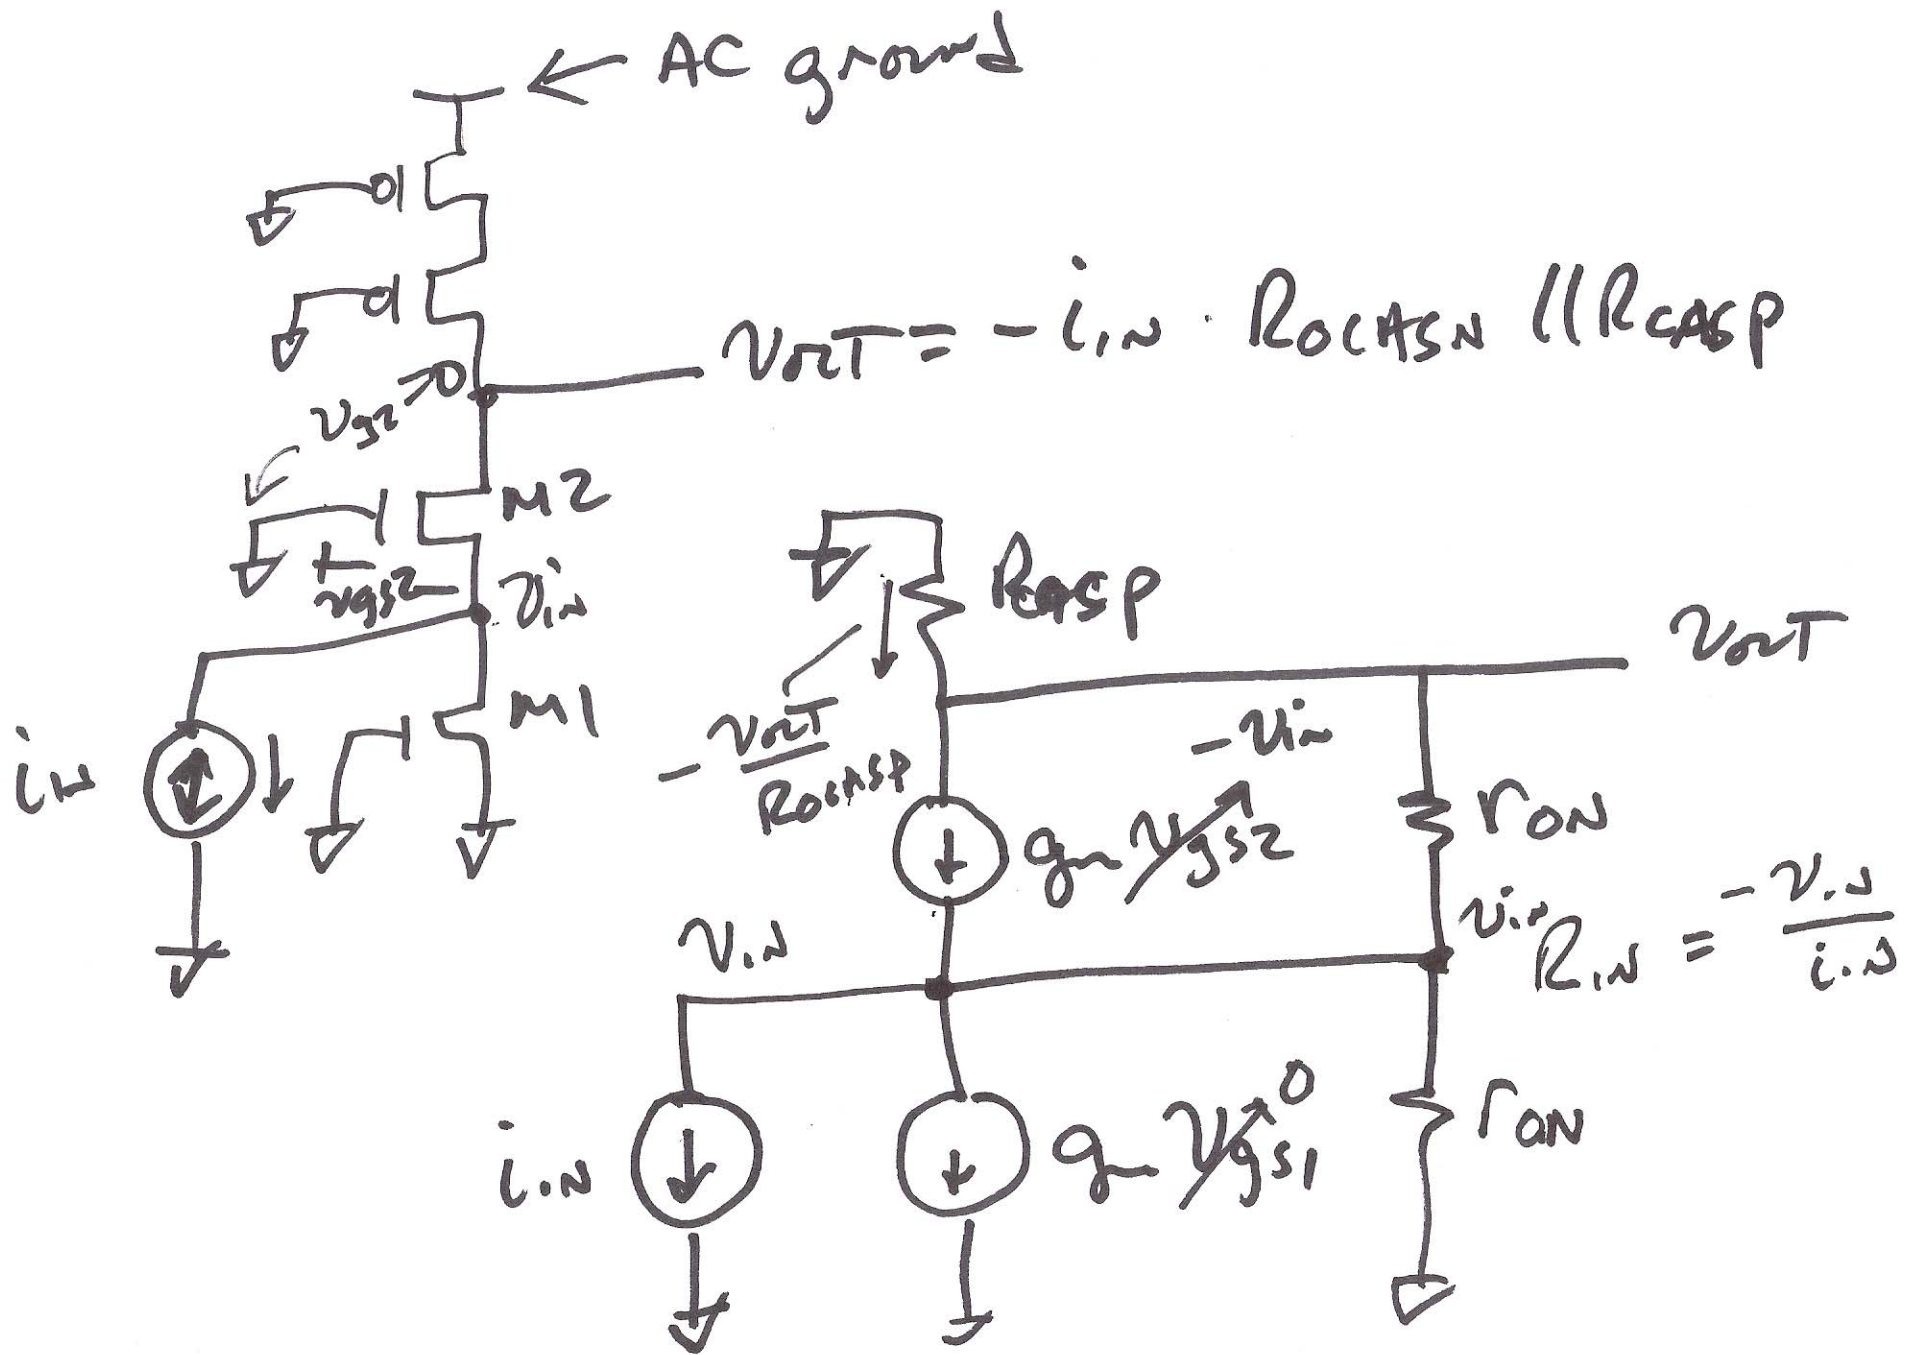 AC ground
vOUT = -iIN · ROCASN || RCASP
vg2 → 0
M2
+
vgs2 -
vin
M1
iIN
RCASP
vOUT
-vOUT/ROCASP
-vin
gm vgs2
rON
vIN
vin
RIN = -vIN/iIN
0
iIN
gm vgs1
rON